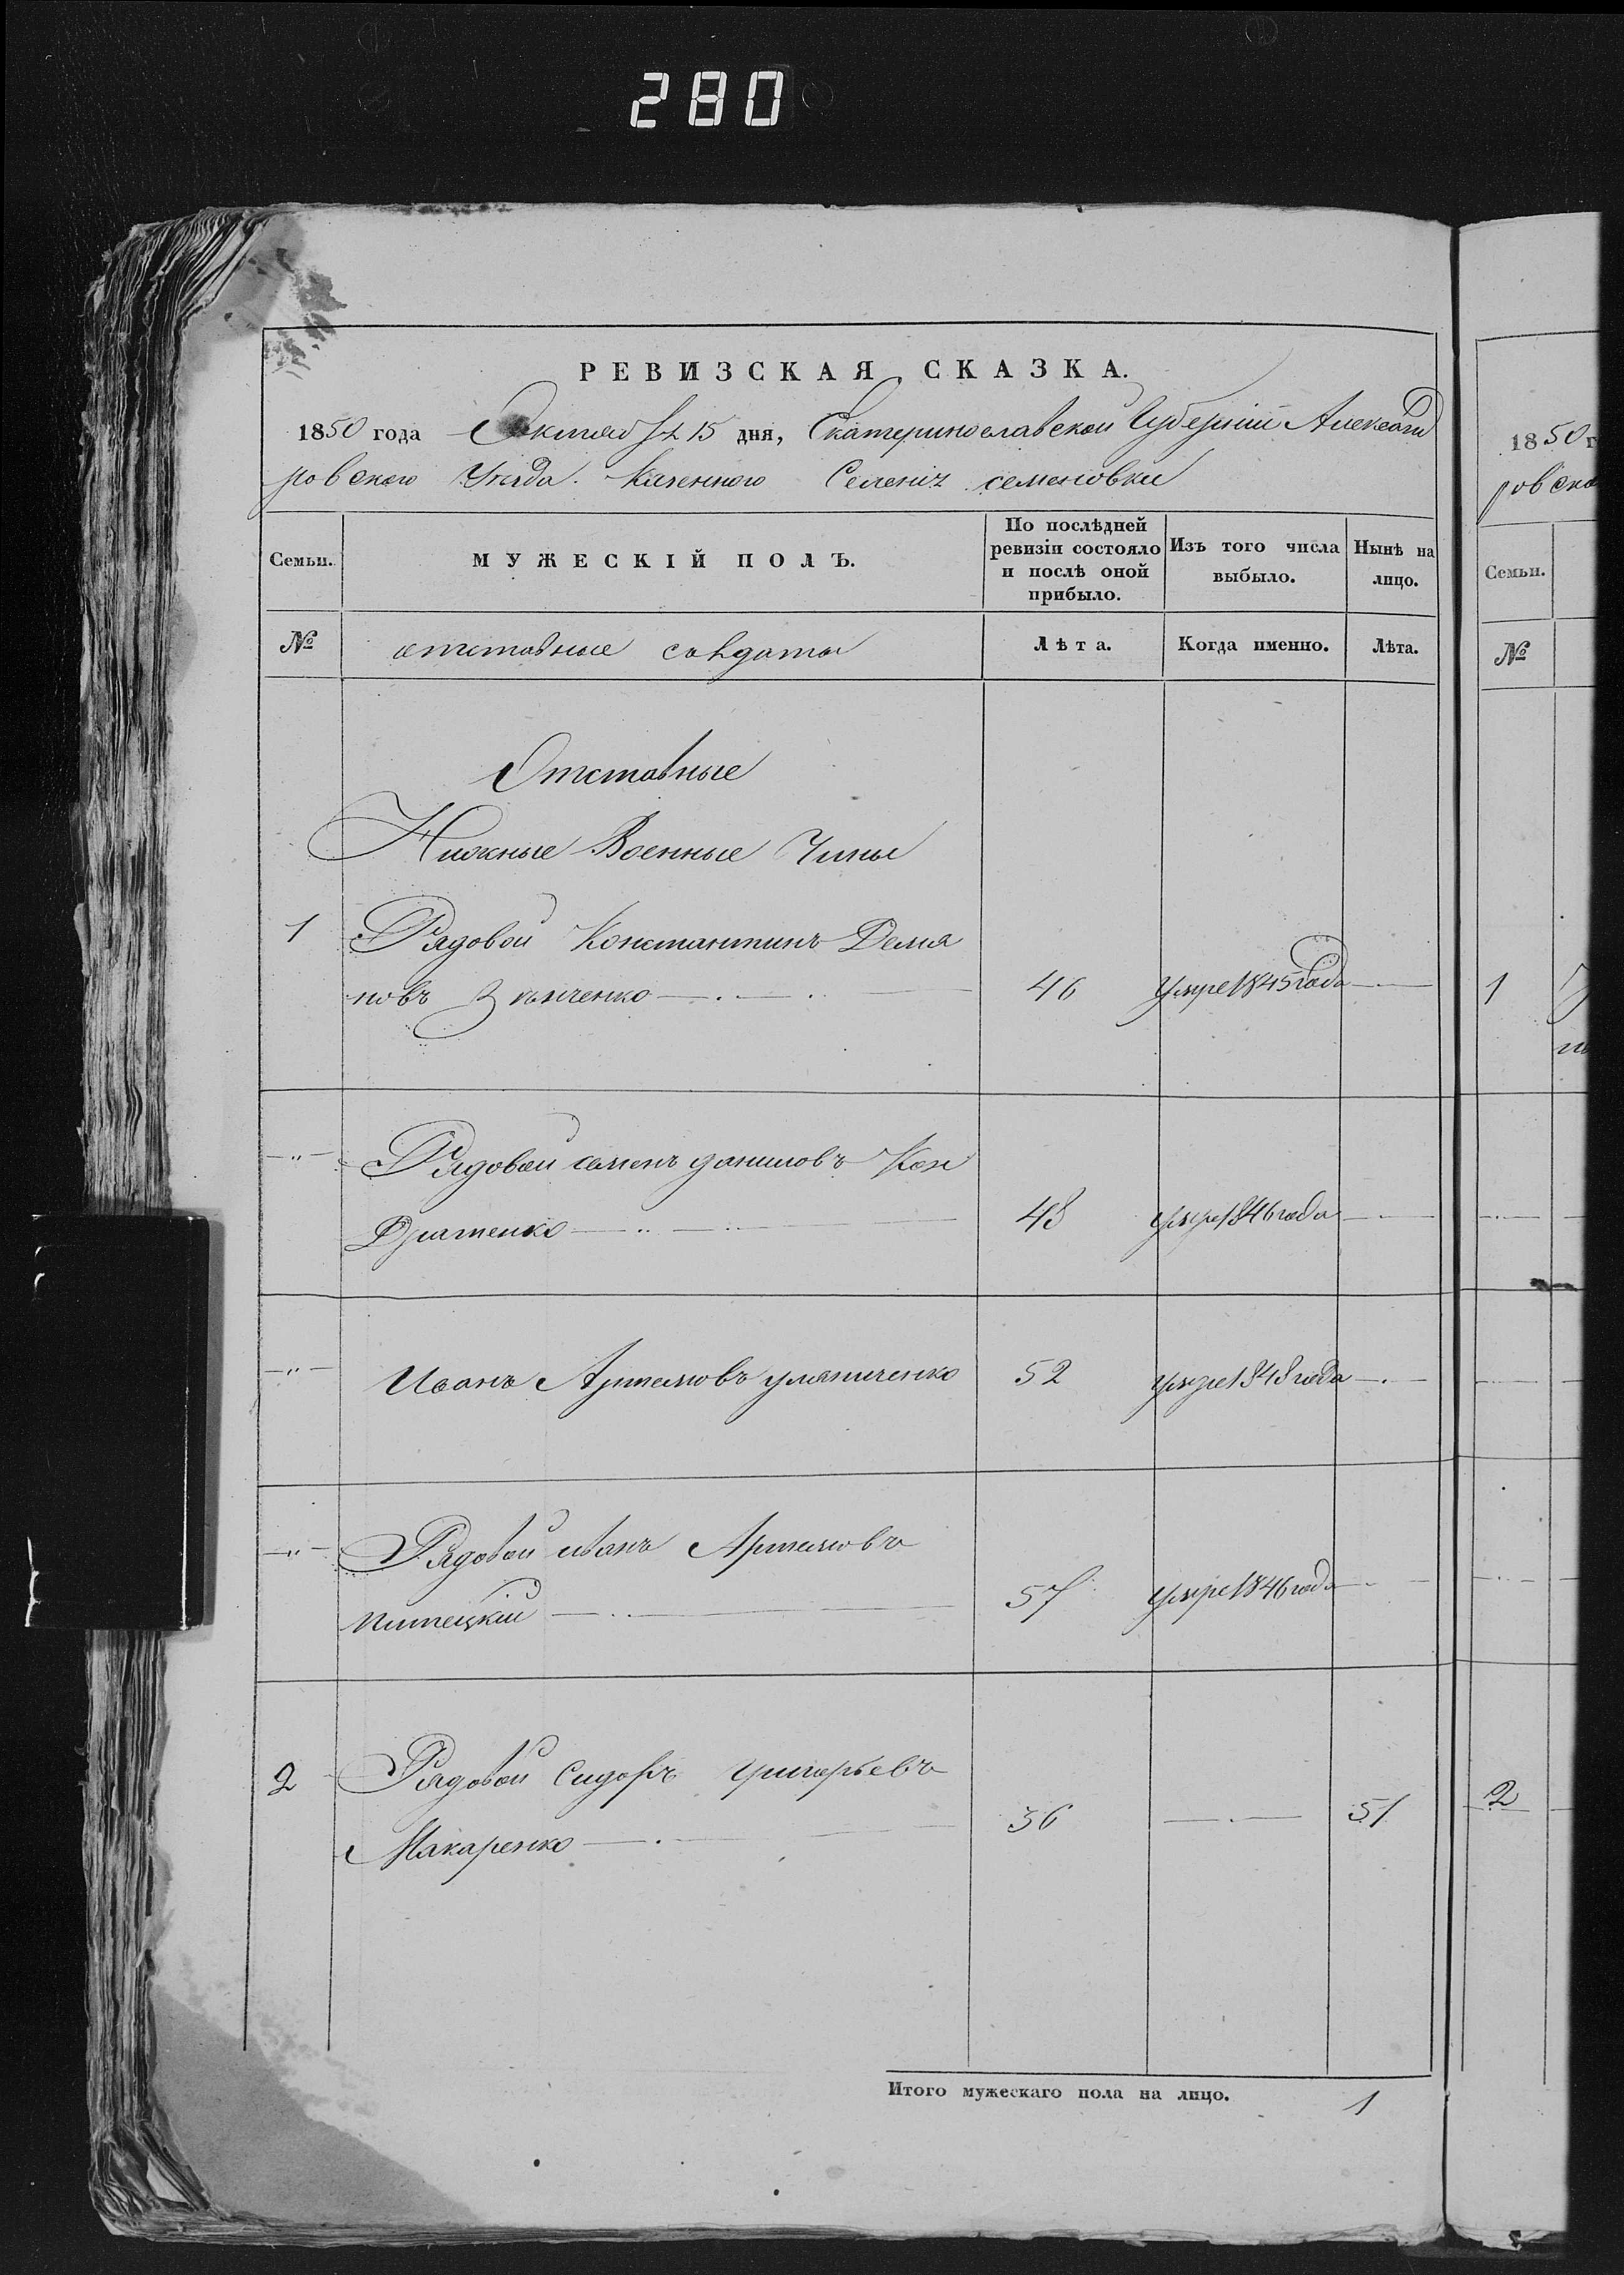 280
РЕВИЗСКАЯ СКАЗКА.
1850 года Октября 15 дня, Екатеринославской Губерніи Александ
ровского Уезда. Казенного Селенія семеновки
Семьи. МУЖЕСКІЙ ПОЛЪ. По послѣдней ревизіи состояло и послѣ оной прибыло. Изъ того числа выбыло. Нынѣ на лицо.
№ отставные солдаты Лѣта. Когда именно. Лѣта.
Отставные
Нижные Военные Чины
1 Рядовой Константинъ Демя
новъ 46 Умре 1845 года
Рядовой семенъ даниловъ Кон
Дратенко 48 умре 1846 года
Иванъ Артемовъ 52 умре 1848 года
Рядовой иванъ Артемовъ
57 умре 1846 года
2 Рядовой Сидоръ григорьевъ
Макаренко 36 51
Итого мужескаго пола на лицо. 1
1850 г
ровско
Семьи.
№
1
2